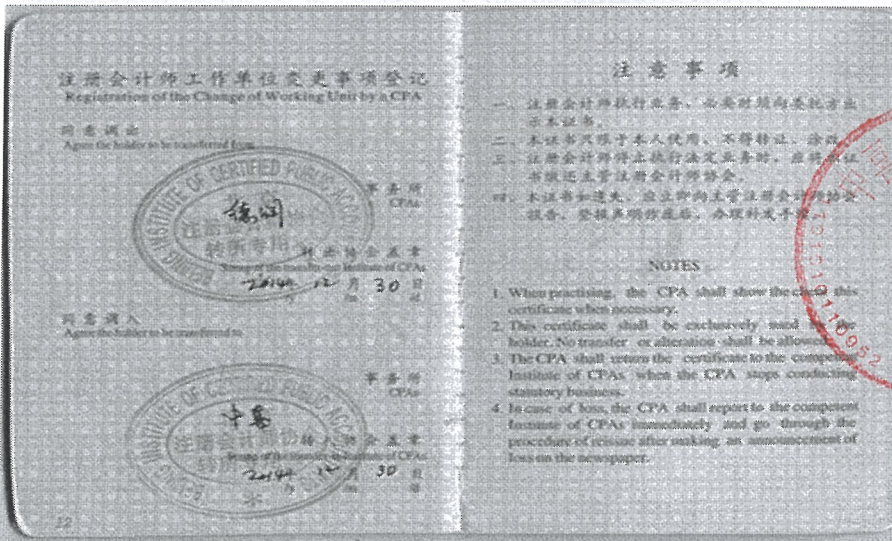 注册会计师工作单位变更事项登记
Registration of the Change of Working Unit by a CPA
同意调出
Agree the holder to be transferred from
德润
事务所
CPAs
转出协会盖章
Stamp of the transfer-out Institute of CPAs
2014年 12月 30日
同意调入
Agree the holder to be transferred to
事务所
CPAs
转入协会盖章
Stamp of the transfer-in Institute of CPAs
2014年 12月 30日
12
BEIJING INSTITUTE OF CERTIFIED PUBLIC
注册会计师协会
转所专用
注意事项
一、注册会计师执行业务，必要时须向委托方出
示本证书。
二、本证书只限于本人使用，不得转让、涂改。
三、注册会计师停止执行法定业务时，应将本证
书缴还主管注册会计师协会。
四、本证书如遗失，应立即向主管注册会计师协会
报告，登报声明作废后，办理补发手续。
NOTES
1. When practising, the CPA shall show the client this
certificate when necessary.
2. This certificate shall be exclusively used by the
holder. No transfer or alteration shall be allowed.
3. The CPA shall return the certificate to the competent
Institute of CPAs when the CPA stops conducting
statutory business.
4. In case of loss, the CPA shall report to the competent
Institute of CPAs immediately and go through the
procedure of reissue after making an announcement of
loss on the newspaper.